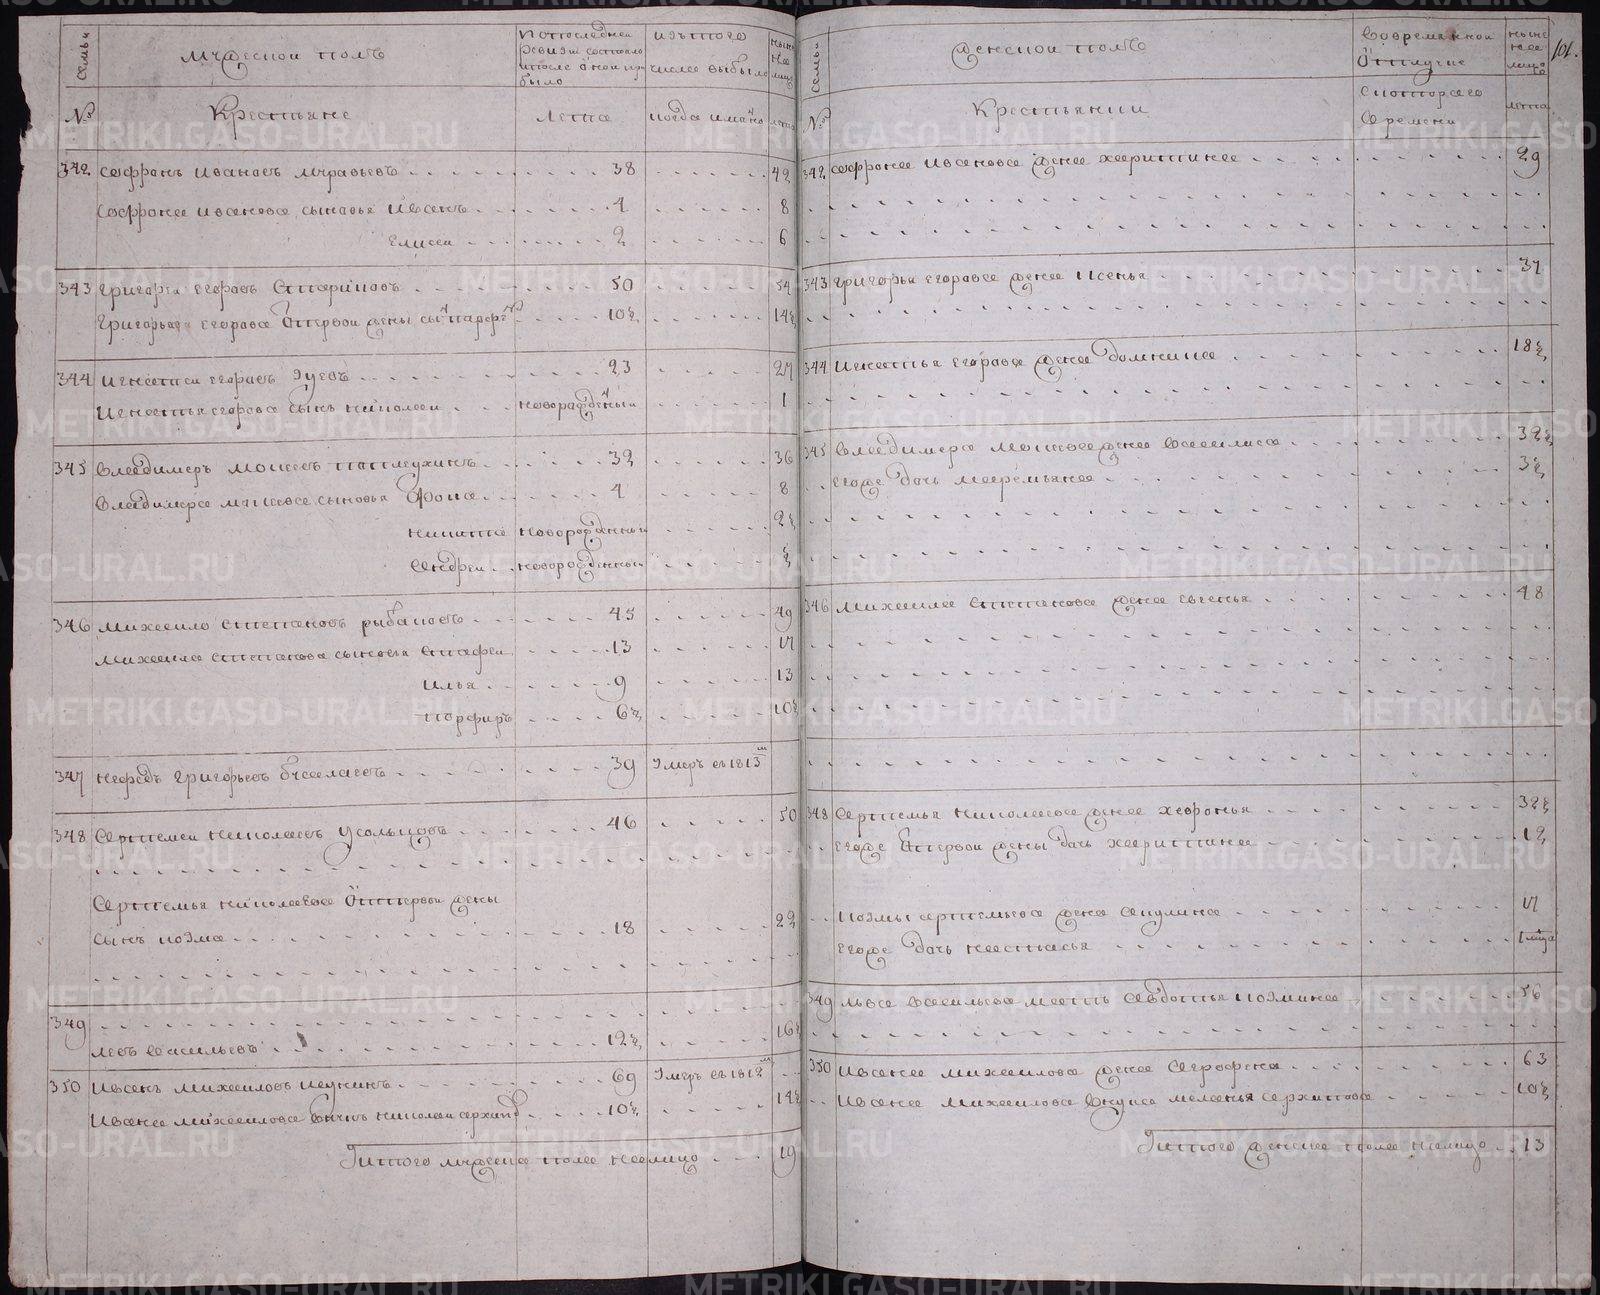 101.
Семьи
Мужескои полъ
Попоследнеи
ревизии состояло
ипосле оной при
было
изътого
числа выбыло
ныне
налицо
№
Крестьяне
Лета
когда имянно
лета
342 Софронъ Ивановъ Муравьевъ 38 42
Софрона Иванова сыновья Иванъ 4 8
Елисеи 2 6
343 Григореи Егоровъ 50 54
Григорья Егорова отпервои жены сынъ 10½ 14½
344 Игнатеи Егоровъ Зуевъ 23 27
Игнатья Егорова сынъ Николаи новорожденныи 1
345 Владимеръ Моисеевъ 32 36
Владимера Моисеева сыновья Фома 4 8
Никита новорожденныи 2½
Андреи новорожденныи ½
346 Михаило Степановъ Рыбаковъ 45 49
Михаила Степанова сыновья 13 17
Илья 9 13
Порфиръ 6½ 10½
347 Нефедъ Григорьевъ 39 Умеръ въ 1813м
348 Артемеи Николаевъ Усольцовъ 46 50
Артемья Николаева отпервои жены
сынъ Козма 18 22
349
Левъ Васильевъ 12½ 16½
350 Иванъ Михаиловъ 69 Умеръ въ 1812м
Ивана Михаилова внукъ Николаи Архиповъ 10½ 14½
Итого мужеска пола налицо 19
Семьи
Женскои полъ
Вовременнои
Отлучке
ныне
налицо
№
Крестьянки
Скоторого
Времени
лета
342 Софрона Иванова жена Харитина 29
343 Григорья Егорова жена Ксенья 37
344 Игнатья Егорова жена Домнина 18½
345 Владимера Моисеева жена Василиса 32½
Егоже дочь Маремьяна 3½
346 Михаила Степанова жена Евгенья 48
348 Артемья Николаева жена Хавронья 32½
Егоже отпервои жены дочь Харитина 12
Козмы Артемьева жена Акулина 17
Егоже дочь Настасья
349 Льва Васильева мать Авдотья Козмина 56
350 Ивана Михаилова жена Аграфена 63
Ивана Михаилова внука Меланья Архипова 10½
Итого женска пола налицо 13
METRIKI.GASO-URAL.RU